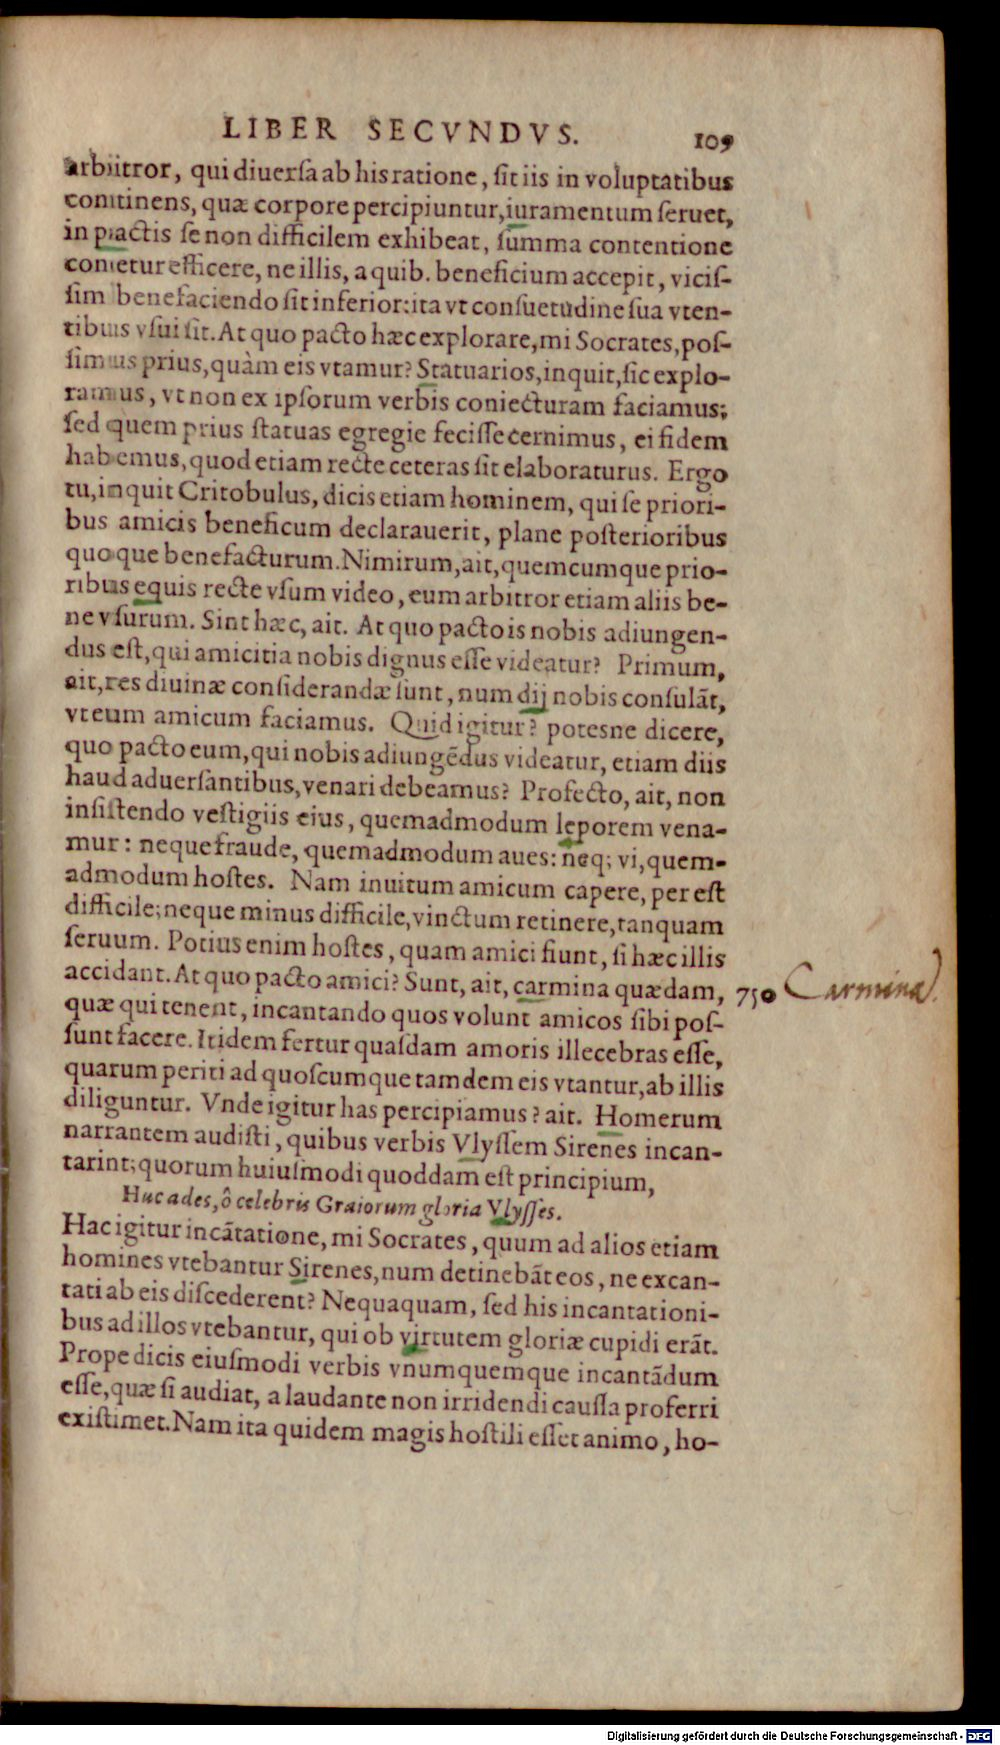 LIBER SECVNDVS. 109
arbitror, qui diuersa ab his ratione, sit iis in voluptatibus
continens, quæ corpore percipiuntur, iuramentum seruet,
in pactis se non difficilem exhibeat, summa contentione
conetur efficere, ne illis, a quib. beneficium accepit, vicis-
sim benefaciendo sit inferior: ita vt consuetudine sua vten-
tibus vsui sit. At quo pacto hæc explorare, mi Socrates, pos-
simus prius, quàm eis vtamur? Statuarios, inquit, sic explo-
ramus, vt non ex ipsorum verbis coniecturam faciamus;
sed quem prius statuas egregie fecisse cernimus, ei fidem
habemus, quod etiam recte ceteras sit elaboraturus. Ergo
tu, inquit Critobulus, dicis etiam hominem, qui se priori-
bus amicis beneficum declarauerit, plane posterioribus
quoque benefacturum. Nimirum, ait, quemcumque prio-
ribus equis recte vsum video, eum arbitror etiam aliis be-
ne vsurum. Sint hæc, ait. At quo pacto is nobis adiungen-
dus est, qui amicitia nobis dignus esse videatur? Primum,
ait, res diuinæ considerandæ sunt, num dij nobis consulāt,
vt eum amicum faciamus. Quid igitur? potesne dicere,
quo pacto eum, qui nobis adiungēdus videatur, etiam diis
haud aduersantibus, venari debeamus? Profecto, ait, non
insistendo vestigiis eius, quemadmodum leporem vena-
mur: neque fraude, quemadmodum aues: neq; vi, quem-
admodum hostes. Nam inuitum amicum capere, per est
difficile; neque minus difficile, vinctum retinere, tanquam
seruum. Potius enim hostes, quam amici fiunt, si hæc illis
accidant. At quo pacto amici? Sunt, ait, carmina quædam, 750 Carmina.
quæ qui tenent, incantando quos volunt amicos sibi pos-
sunt facere. Itidem fertur quasdam amoris illecebras esse,
quarum periti ad quoscumque tamdem eis vtantur, ab illis
diliguntur. Vnde igitur has percipiamus? ait. Homerum
narrantem audisti, quibus verbis Vlyssem Sirenes incan-
tarint; quorum huiusmodi quoddam est principium,
Huc ades, ô celebris Graiorum gloria Vlysses.
Hac igitur incātatione, mi Socrates, quum ad alios etiam
homines vtebantur Sirenes, num detinebāt eos, ne excan-
tati ab eis discederent? Nequaquam, sed his incantationi-
bus ad illos vtebantur, qui ob virtutem gloriæ cupidi erāt.
Prope dicis eiusmodi verbis vnumquemque incantādum
esse, quæ si audiat, a laudante non irridendi caussa proferri
existimet. Nam ita quidem magis hostili esset animo, ho-
Digitalisierung gefördert durch die Deutsche Forschungsgemeinschaft - DFG